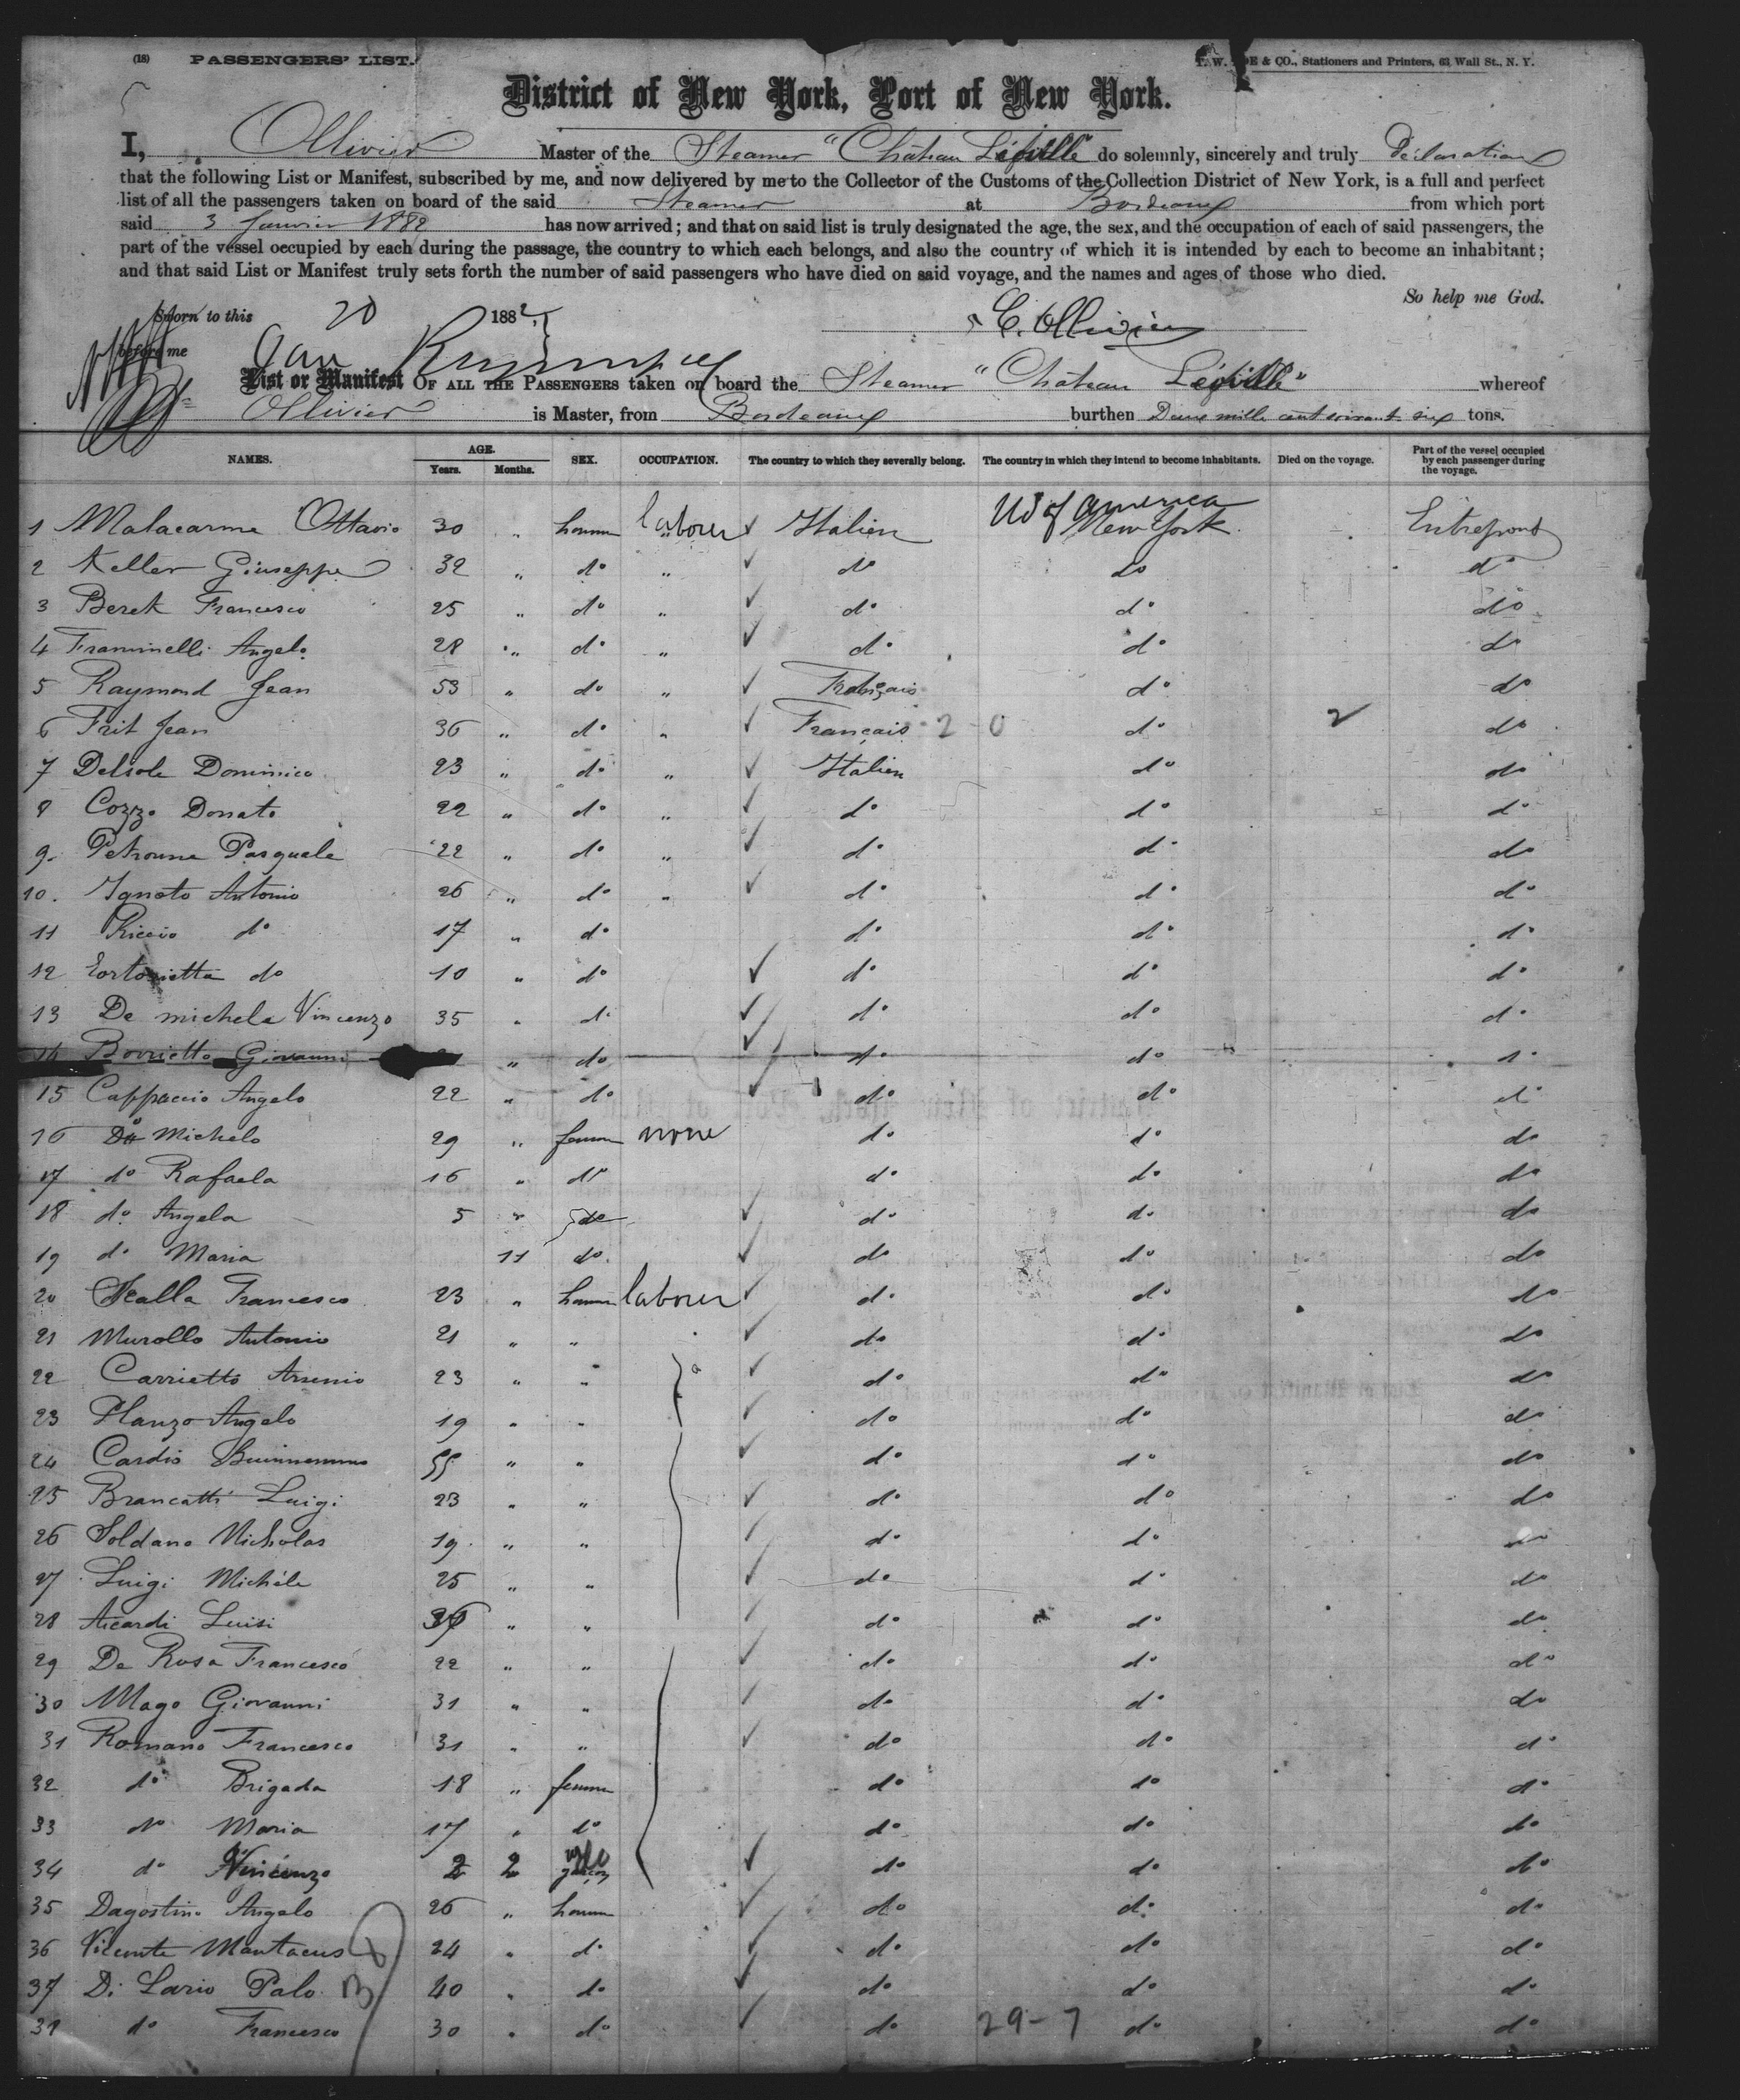 (18) PASSENGERS' LIST. & CO., Stationers and Printers, 63 Wall St., N. Y.
District of New York, Port of New York.
I, Ollivier Master of the Steamer "Château Léoville" do solemnly, sincerely and truly Déclaration
that the following List or Manifest, subscribed by me, and now delivered by me to the Collector of the Customs of the Collection District of New York, is a full and perfect
list of all the passengers taken on board of the said Steamer at Bordeaux from which port
said 3 Janvier 1882 has now arrived; and that on said list is truly designated the age, the sex, and the occupation of each of said passengers, the
part of the vessel occupied by each during the passage, the country to which each belongs, and also the country of which it is intended by each to become an inhabitant;
and that said List or Manifest truly sets forth the number of said passengers who have died on said voyage, and the names and ages of those who died.
So help me God.
Sworn to this 20 1882 E. Ollivier
before me Jan
List or Manifest OF ALL THE PASSENGERS taken on board the Steamer "Château Léoville" whereof
Ollivier is Master, from Bordeaux burthen Deux mille cent soixante six tons.
NAMES. AGE. Years. Months. SEX. OCCUPATION. The country to which they severally belong. The country in which they intend to become inhabitants. Died on the voyage. Part of the vessel occupied by each passenger during the voyage.
1 Malacarme Ottavio 30 " homme laborer Italien US of America New York Entrepont
2 Keller Giuseppe 32 " do " do do do
3 Berek Francesco 25 " do " do do do
4 Framinelli Angelo 28 " do " do do do
5 Raymond Jean 53 " do " Français do do
6 Frit Jean 36 " do " Français 2 0 do 2 do
7 Delsole Dominico 23 " do " Italien do do
8 Cozzo Donato 22 " do " do do do
9 Petronne Pasquale 22 " do " do do do
10. Ignoto Antonio 26 " do " do do do
11 Riccio do 17 " do do do do
12 do 10 " do do do do
13 De michele Vincenzo 35 " do do do do
14 Borrietto Giovanni " do do do do
15 Cappaccio Angelo 22 " do do do do
16 Do Michelo 29 " femme none do do do
17 do Rafaela 16 " do do do do
18 do Angela 5 " do do do do
19 do Maria 11 do do do do
20 Scalla Francesco 23 " homme laborer do do do
21 Murollo Antonio 21 " " do do do
22 Carrietto Arsenio 23 " " do do do
23 Planzo Angelo 19 " " do do do
24 Cardio 55 " " do do do
25 Brancatti Luigi 23 " " do do do
26 Soldano Nicholas 19 " " do do do
27 Luigi Michéle 25 " " do do do
28 Aicardi Luisi " " do do do
29 De Rosa Francesco 22 " " do do do
30 Mago Giovanni 31 " " do do do
31 Romano Francesco 31 " " do do do
32 do Brigada 18 " femme do do do
33 do Maria 17 " do do do do
34 do Vincenzo 2 2 garçon do do do
35 Dagostino Angelo 26 " homme do do do
36 Vicente Mantacus 24 " do do do do
37 Di Lario Palo 40 " do do do do
38 do Francesco 30 " do do 29-7 do do